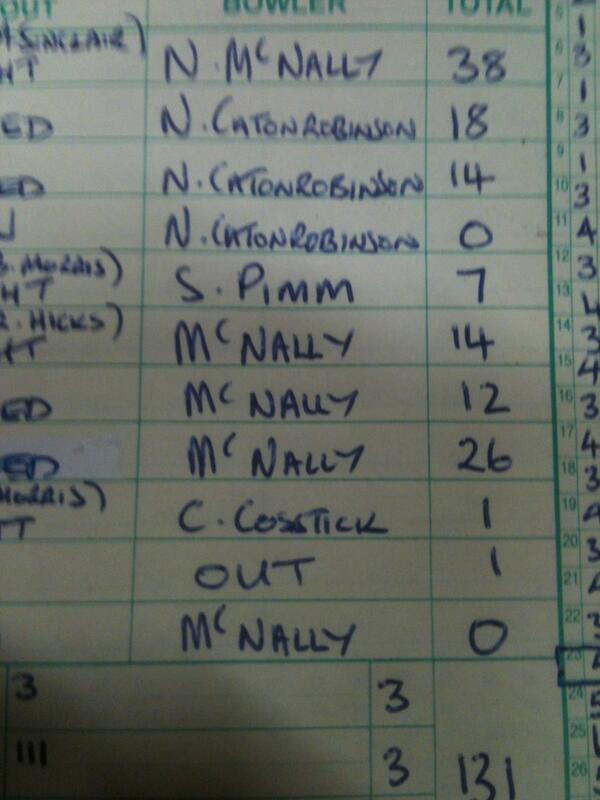 OUT BOWLER TOTAL
SINCLAIR)
HT N. McNALLY 38
ED N. CATONROBINSON 18
ED N. CATONROBINSON 14
N. CATONROBINSON 0
MORRIS)
HT S. PIMM 7
R. HICKS)
HT McNALLY 14
ED McNALLY 12
ED McNALLY 26
MORRIS)
TT C. COSSTICK 1
OUT 1
McNALLY 0
3 3
III 3 131
5 1
6 3
7 1
8 3
9 1
10 3
11 4
12 3
13 4
14 3
15 4
16 3
17 4
18 3
19 4
20 3
21 4
22 3
23
24 5
25
26